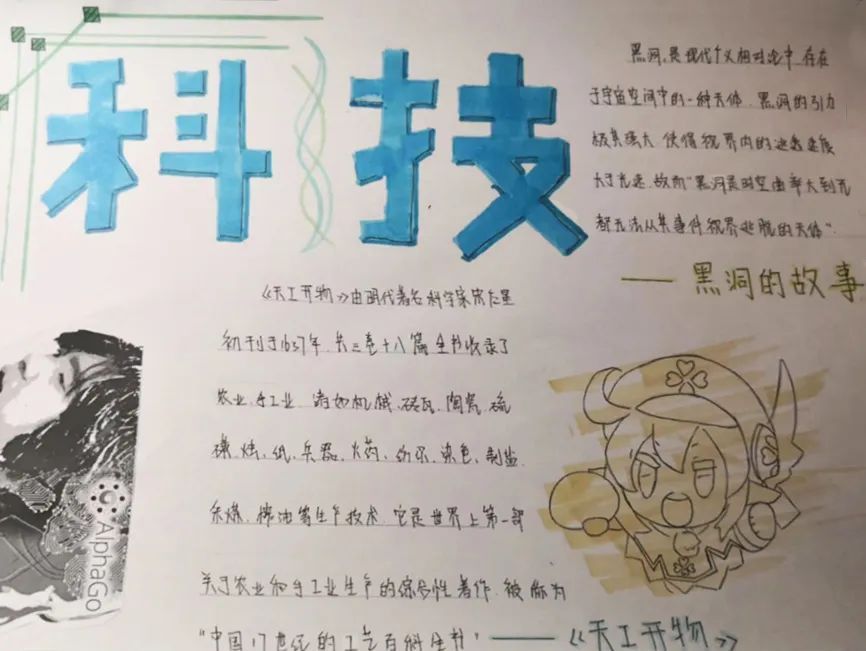 科技
黑洞,是现代广义相对论中,存在
于宇宙空间中的一种天体.黑洞的引力
极其强大,使得视界内的逃逸速度
大于光速.故而"黑洞是时空曲率大到光
都无法从其事件视界逃脱的天体".
——黑洞的故事
《天工开物》由明代著名科学家宋应星
初刊于1637年.共三卷十八篇.全书收录了
农业.手工业.诸如机械.砖瓦.陶瓷.硫
磺.烛.纸.兵器.火药.纺织.染色.制盐.
采煤.榨油等生产技术.它是世界上第一部
关于农业和手工业生产的综合性著作.被称为
"中国17世纪的工艺百科全书"
——《天工开物》
AlphaGo